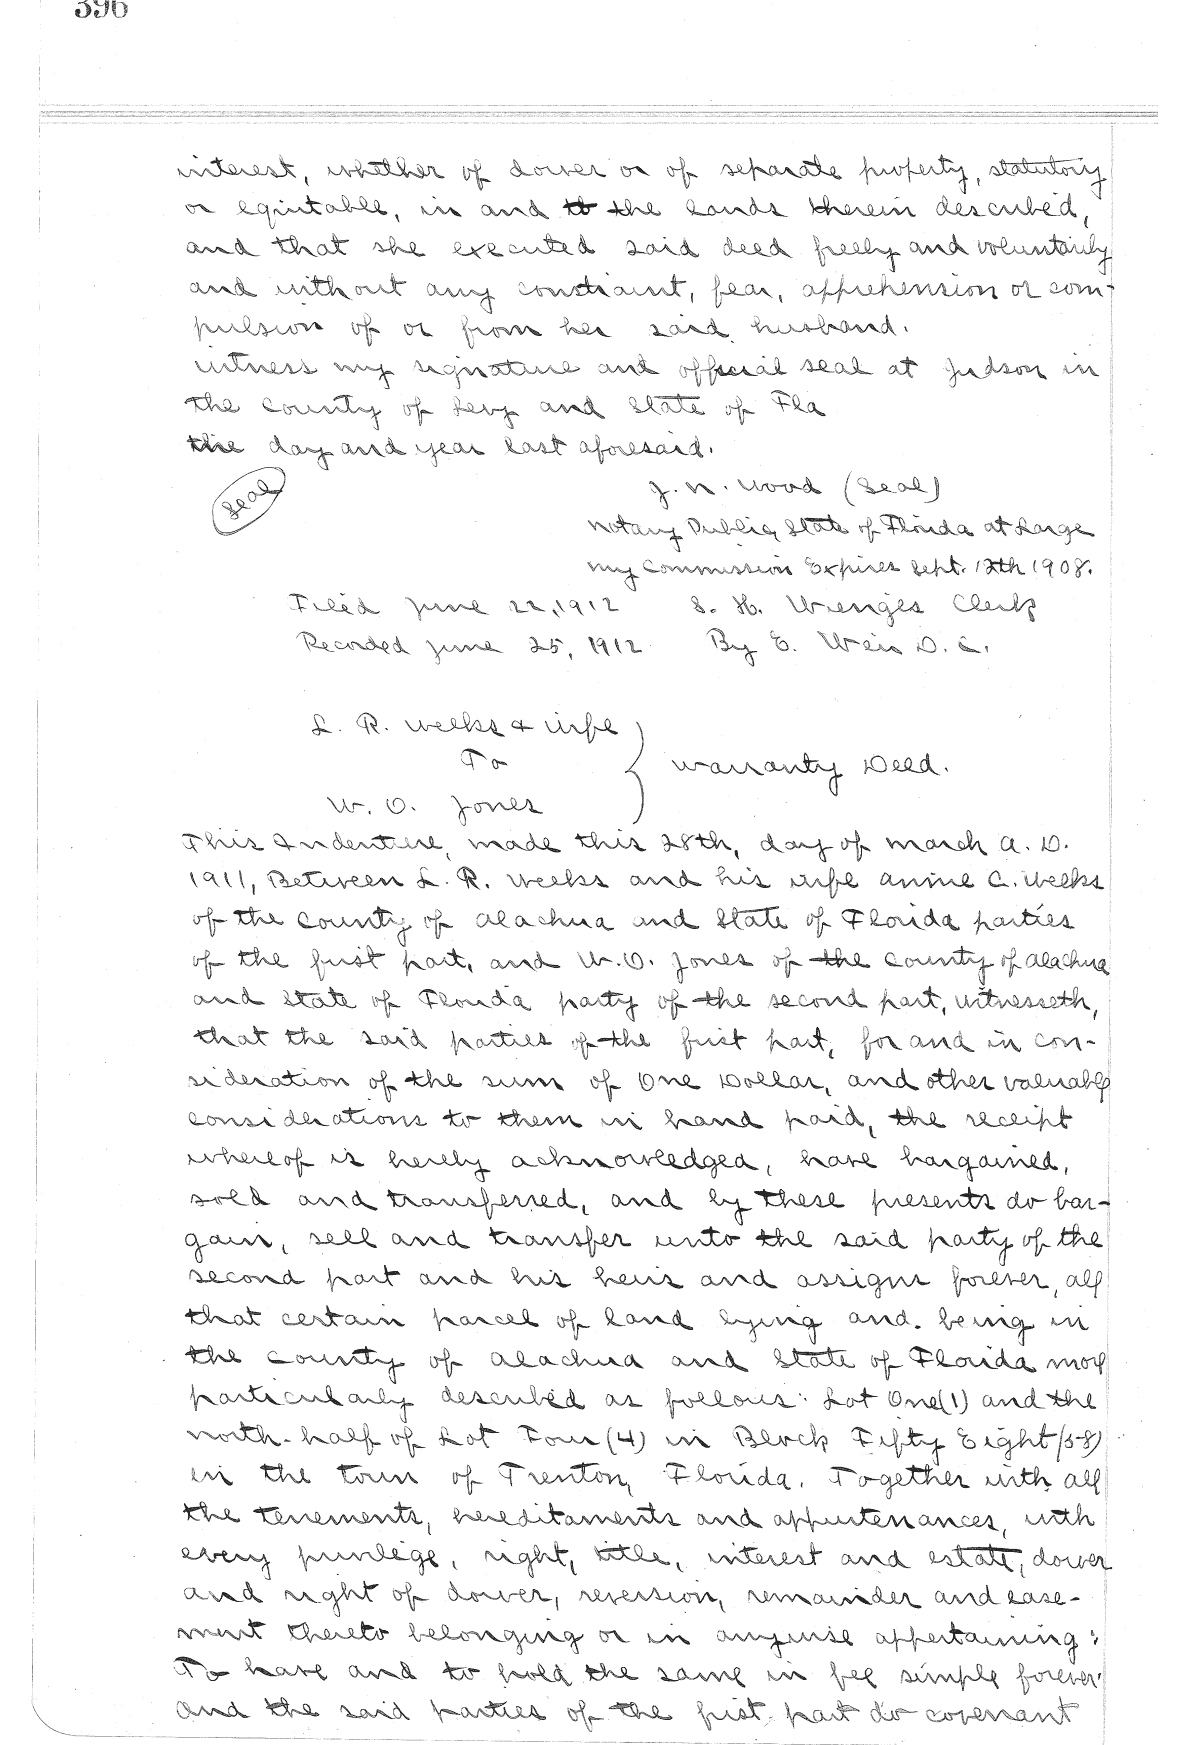 396
interest, whether of dower or of separate property, statutory
or equitable, in and to the lands therein described,
and that she executed said deed freely and voluntarily
and without any constraint, fear, apprehension or com-
pulsion of or from her said husband.
witness my signature and official seal at Judson in
the county of Levy and State of Fla
the day and year last aforesaid.
Seal
J. N. Wood (Seal)
Notary Public, State of Florida at Large
my Commission Expires Sept. 12th 1908.
Filed June 22, 1912 S. H. Wienges Clerk
Recorded June 25, 1912 By E. Weir D. C.
L. R. Weeks & wife
To
Warranty Deed.
W. O. Jones
This Indenture, made this 28th, day of march A. D.
1911, Between L. R. Weeks and his wife Annie C. Weeks
of the County of Alachua and State of Florida parties
of the first part, and W. O. Jones of the County of Alachua
and State of Florida party of the second part, witnesseth,
that the said parties of the first part, for and in con-
sideration of the sum of One Dollar, and other valuable
considerations to them in hand paid, the receipt
whereof is hereby acknowledged, have bargained,
sold and transferred, and by these presents do bar-
gain, sell and transfer unto the said party of the
second part and his heirs and assigns forever, all
that certain parcel of land lying and. being in
the County of Alachua and State of Florida more
particularly described as follows: Lot One (1) and the
north-half of Lot Four (4) in Block Fifty Eight (58)
in the town of Trenton, Florida. Together with all
the tenements, hereditaments and appurtenances, with
every privilege, right, title, interest and estate, dower
and right of dower, reversion, remainder and ease-
ment thereto belonging or in anywise appertaining:
To have and to hold the same in fee simple forever.
And the said parties of the first part do covenant